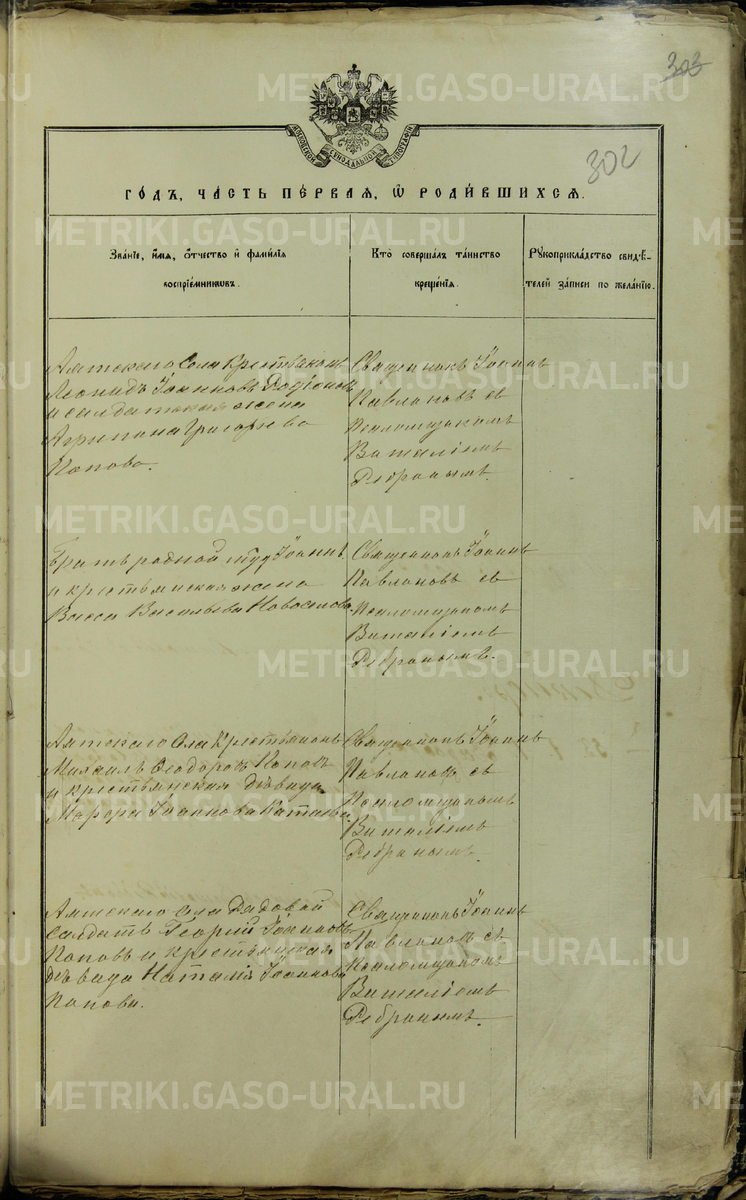 303
302
МОСКОВСКОЙ СѴНОДАЛЬНОЙ ТИПОГРАФІИ
ГОДЪ, ЧАСТЬ ПЕРВАЯ, Ѡ РОДИВШИХСЯ.
Званіе, имя, отчество и фамилія воспріемниковъ.
Кто совершалъ таинство крещенія.
Рукоприкладство свидѣтелей записи по желанію.
села крестьянинъ
Леонидъ Іоанновъ Родіоновъ
и солдатская жена
Агрипина Григорьева
Попова.
Священникъ Іоаннъ
Павлановъ съ
Псаломщикомъ
Виталіемъ
Братъ родной Іоаннъ
и крестьянская жена
Васса Васильева Новоселова
Священникъ Іоаннъ
Павлановъ съ
Псаломщикомъ
Виталіемъ
села крестьянинъ
Михаилъ Ѳеодоровъ Поповъ
и крестьянская дѣвица
Іоаннова
Священникъ Іоаннъ
Павлановъ съ
Псаломщикомъ
Виталіемъ
села Рядовой
солдатъ Георгій Іоанновъ
Поповъ и крестьянская
дѣвица Наталія Іоаннова
Попова.
Священникъ Іоаннъ
Павлановъ съ
Псаломщикомъ
Виталіемъ
METRIKI.GASO-URAL.RU